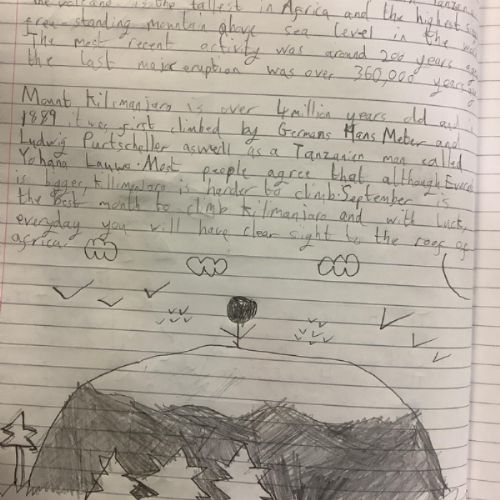 the volcano is the tallest in Africa and the highest
free-standing mountain above sea level in the
The most recent activity was around 200 years ago
the last major eruption was over 360,000 years ago
Mount Kilimanjaro is over 4 million years old and
1889 it was first climbed by Germans Hans Meter and
Ludwig Purtscheller aswell as a Tanzanian man called
Yohana Lauwo. Most people agree that although Everest
is bigger, Kilimanjaro is harder to climb. September is
the best month to climb Kilimanjaro and with luck,
everyday you will have clear sight to the roof of
africa